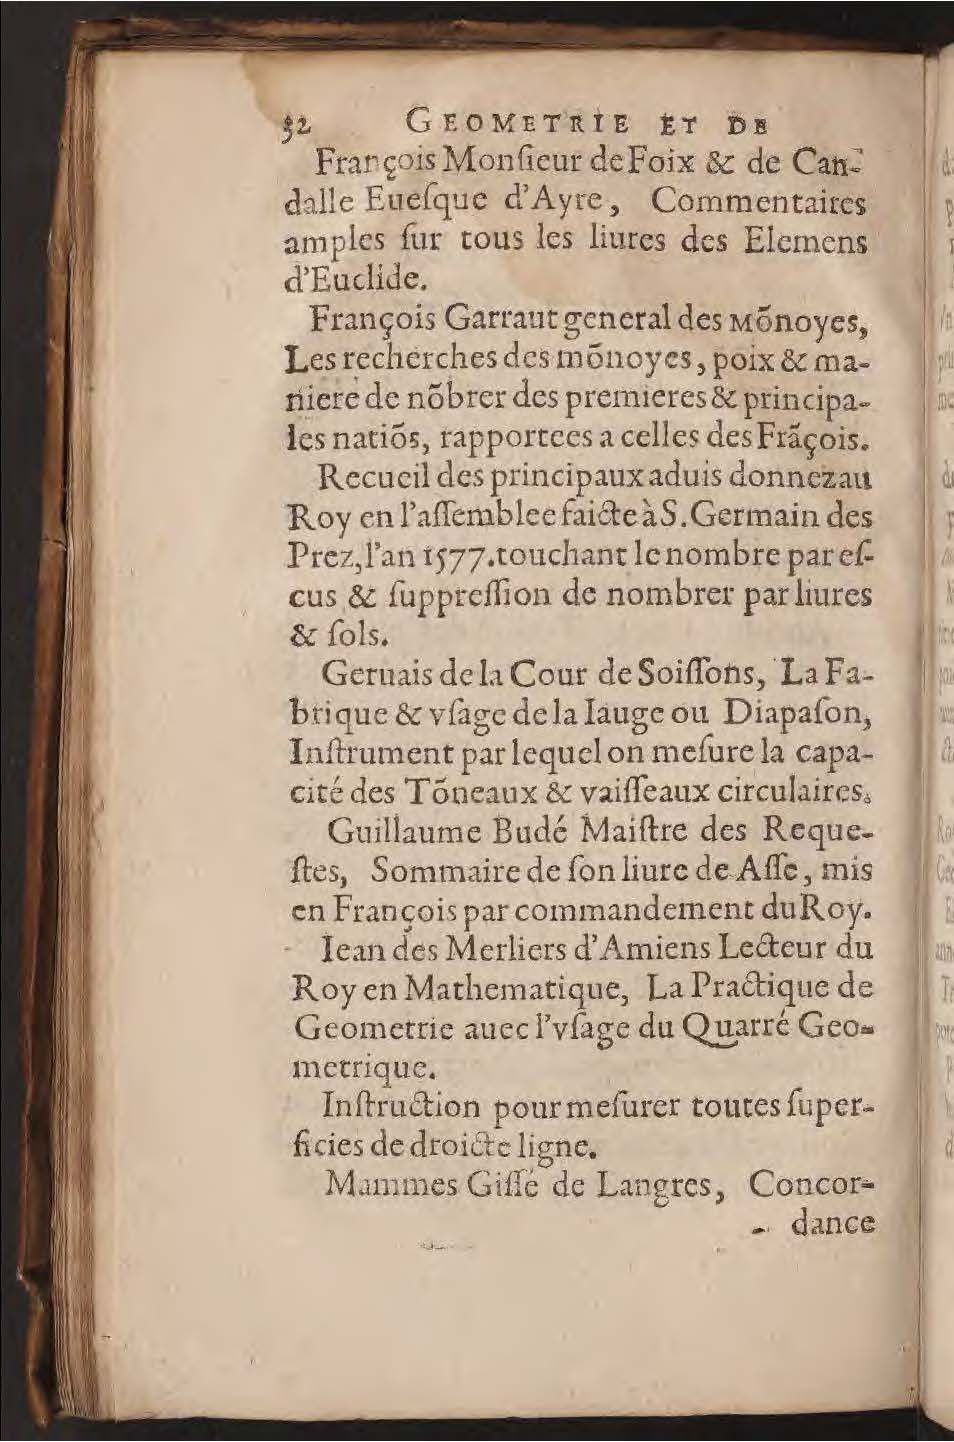 32 GEOMETRIE ET DE
François Monſieur de Foix & de Can-
dalle Eueſque d'Ayre, Commentaires
amples ſur tous les liures des Elemens
d'Euclide.
François Garraut general des Mõnoyes,
Les recherches des mõnoyes, poix & ma-
niere de nõbrer des premieres & principa-
les natiõs, rapportees a celles des Frãçois.
Recueil des principaux aduis donnez au
Roy en l'aſſemblee faicte à S. Germain des
Prez, l'an 1577. touchant le nombre par eſ-
cus & ſuppreſſion de nombrer par liures
& ſols.
Geruais de la Cour de Soiſſons, La Fa-
brique & vſage de la Iauge ou Diapaſon,
Inſtrument par lequel on meſure la capa-
cité des Tõneaux & vaiſſeaux circulaires.
Guillaume Budé Maiſtre des Reque-
ſtes, Sommaire de ſon liure de Aſſe, mis
en François par commandement du Roy.
Iean des Merliers d'Amiens Lecteur du
Roy en Mathematique, La Practique de
Geometrie auec l'vſage du Quarré Geo-
metrique.
Inſtruction pour meſurer toutes ſuper-
ficies de droicte ligne.
Mammes Giſſé de Langres, Concor-
dance